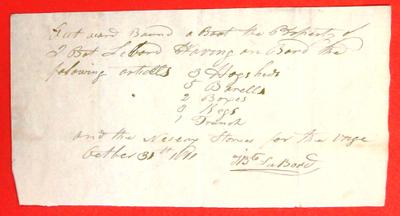 out ward Bound a Boat the Property of
J Bt Lebord Having on Bord the
folowing articles 3 Hogsheds
5 Barells
2 Boxes
2 Kegs
1 Trunck
and the Nesesery Stores for the voige
Octber 31st
J Bte LaBord